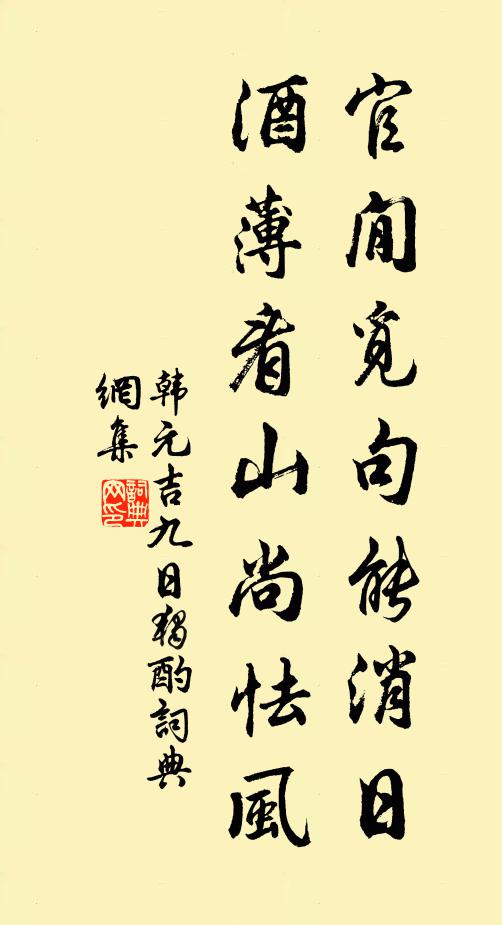 官閒覓句能消日
酒薄看山尚怯風
韩元吉九日独酌詞典
網集
詞典
网印